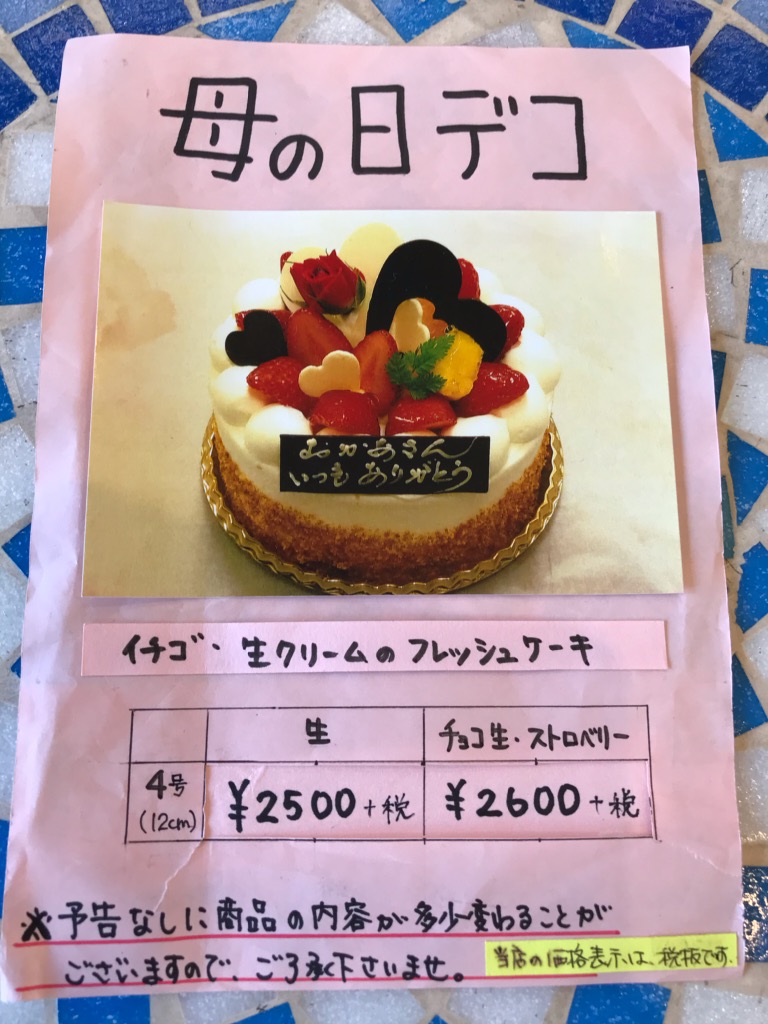 母の日デコ
おかあさん
いつもありがとう
イチゴ・生クリームのフレッシュケーキ
生 チョコ生・ストロベリー
4号 ¥2500+税 ¥2600+税
(12cm)
※予告なしに商品の内容が多少変わることが
ございますので、ご了承下さいませ。
当店の価格表示は、税抜です。